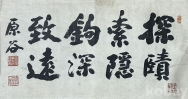 探賾
索隱
鉤深
致遠
原谷